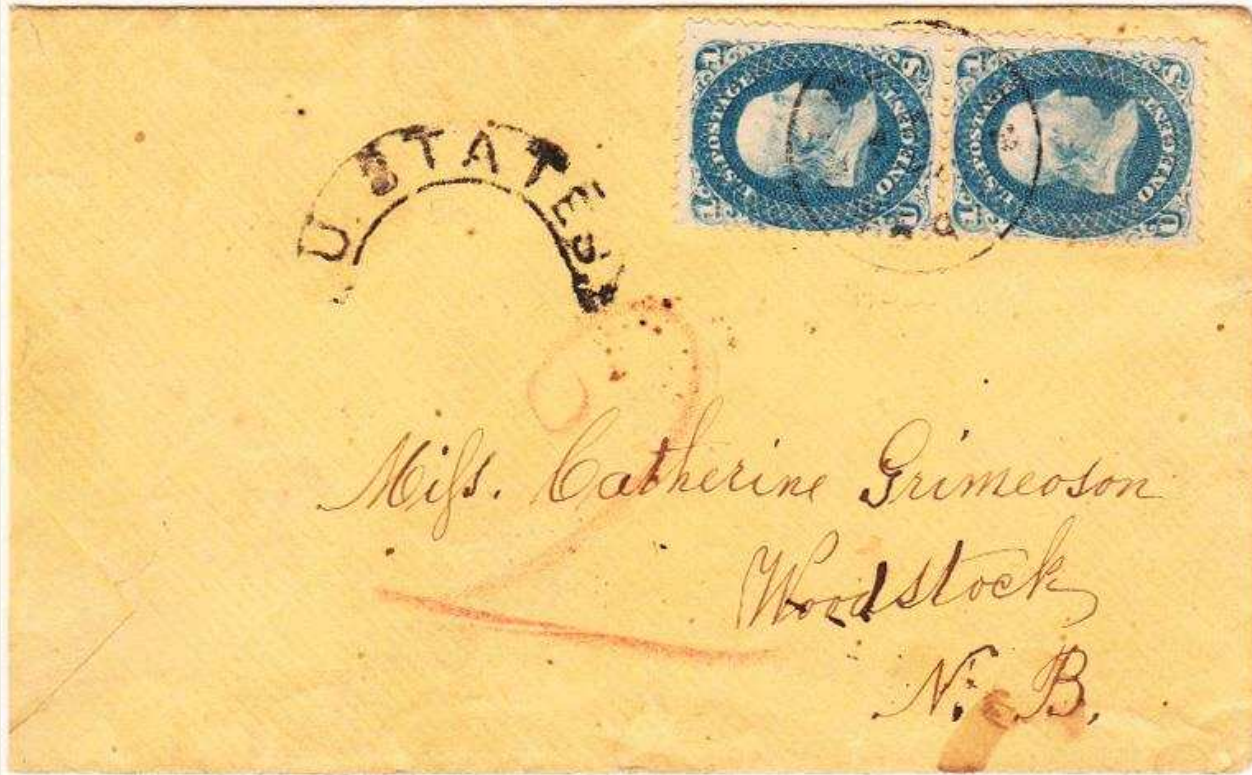 U. STATES
U.S. POSTAGE
ONE CENT
U 1 S 1
U.S. POSTAGE
ONE CENT
U 1 S 1
2
Miss. Catherine Grimeoson
Woodstock
N. B.